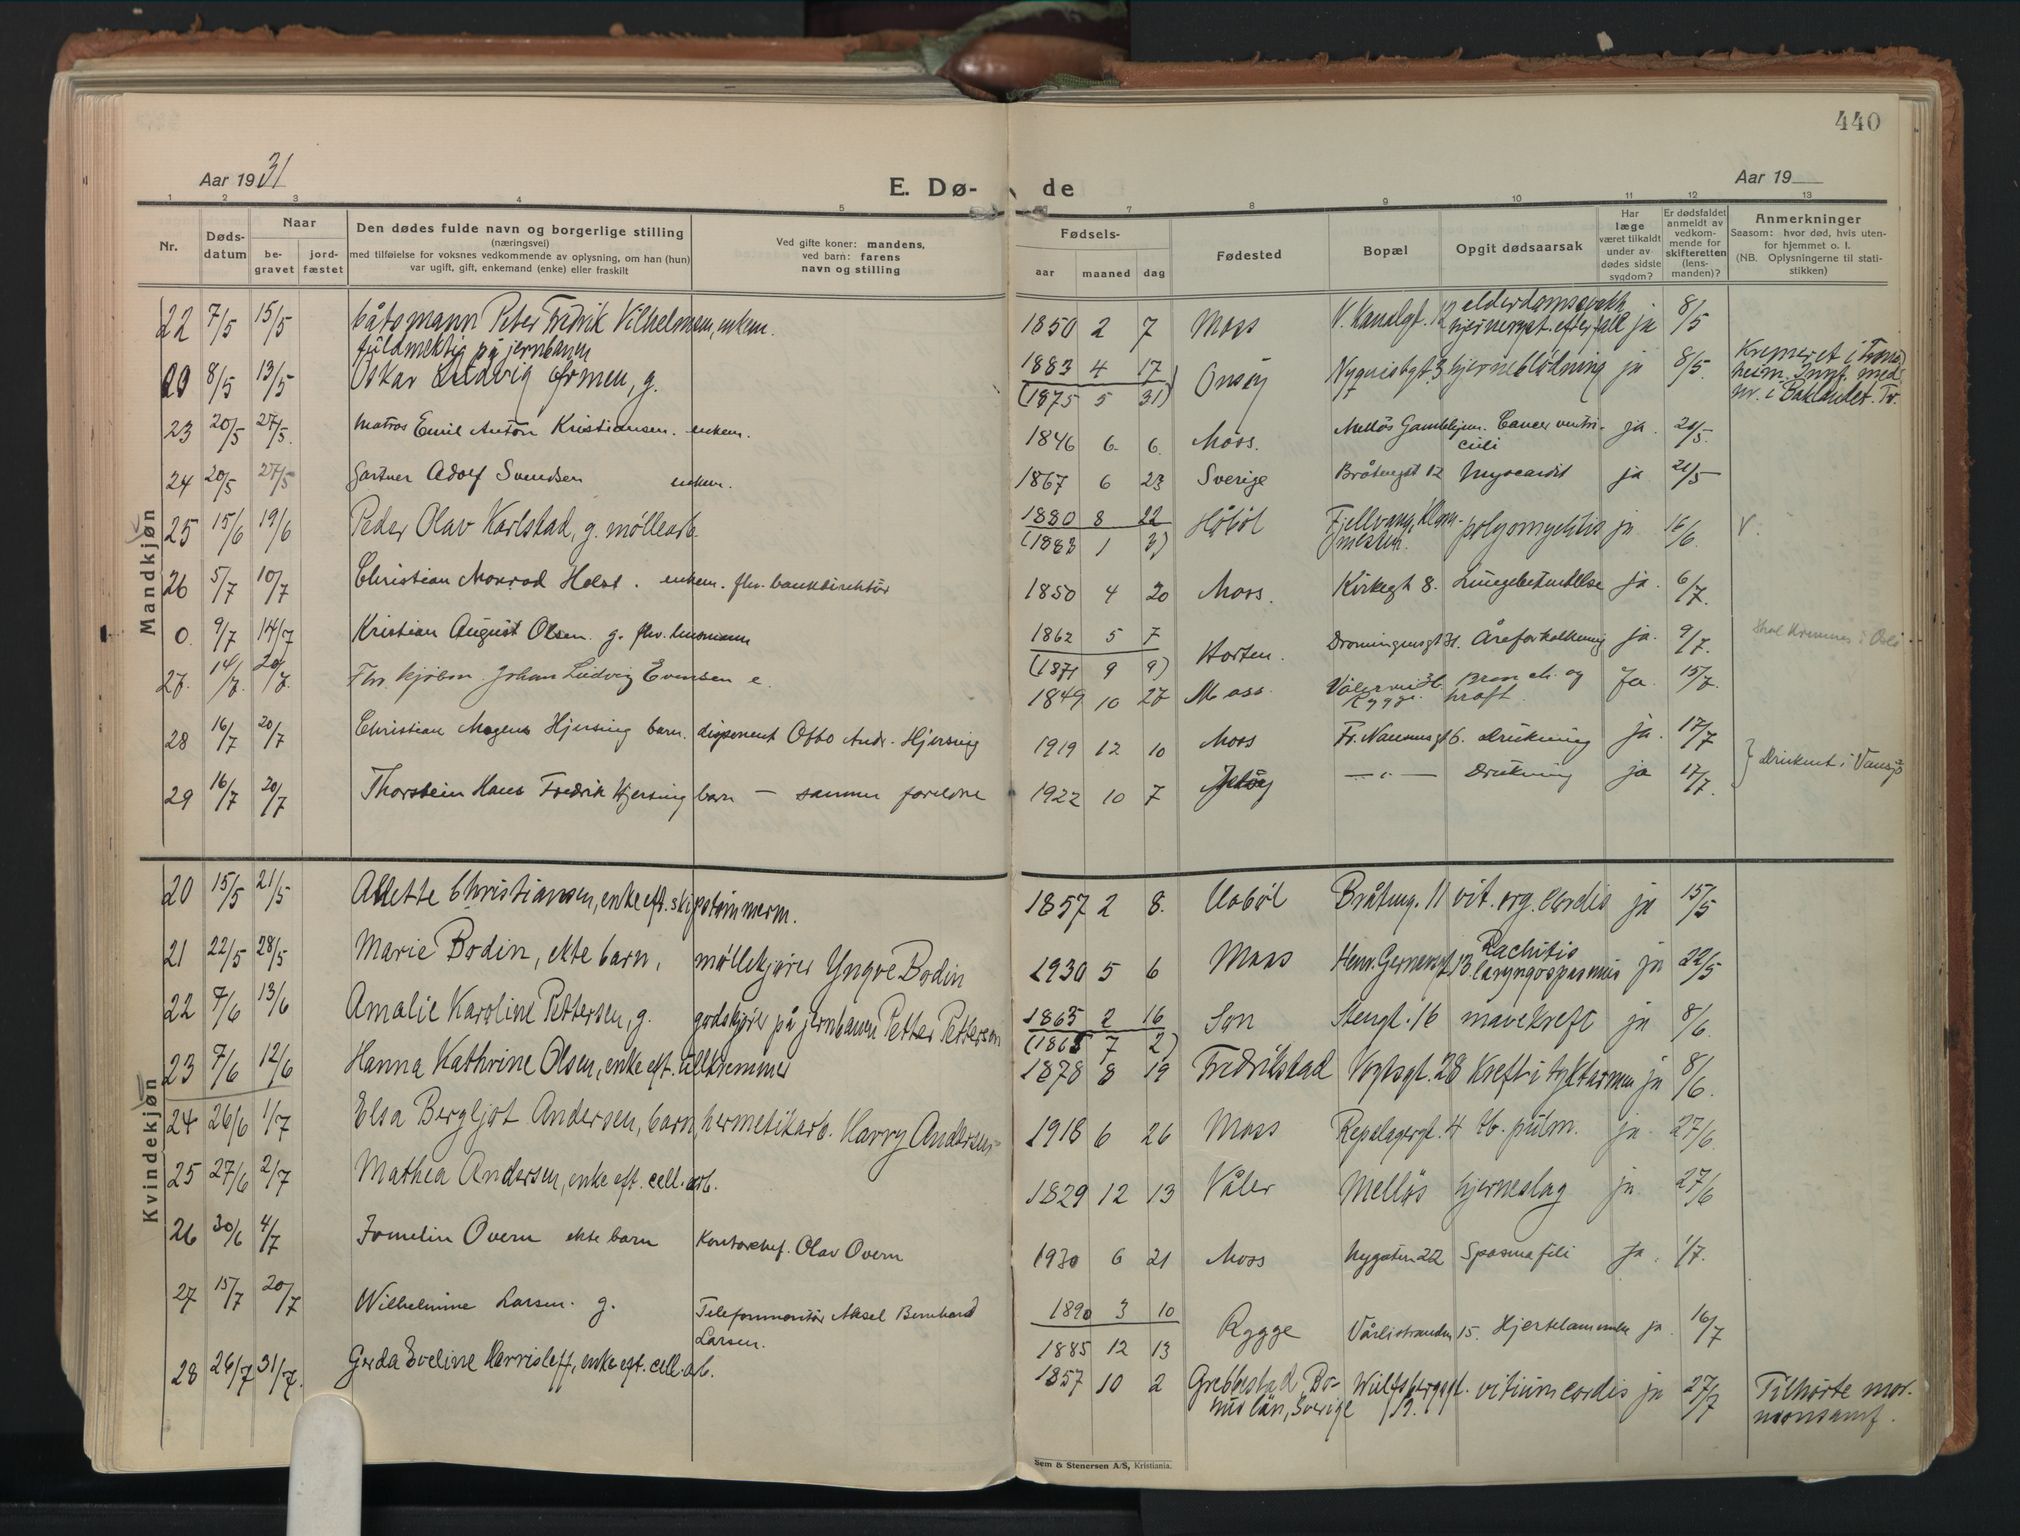 440
Aar 1931
E. Dø- de
Aar 19
1 2 3 4 5 6 7 8 9 10 11 12 13
Nr.
Døds-
datum
Naar
be-
gravet
jord-
fæstet
Den dødes fulde navn og borgerlige stilling
(næringsvei)
med tilføielse for voksnes vedkommende av oplysning, om han (hun)
var ugift, gift, enkemand (enke) eller fraskilt
Ved gifte koner: mandens,
ved barn: farens
navn og stilling
Fødsels-
aar maaned dag
Fødested
Bopæl
Opgit dødsaarsak
Har
læge
været tilkaldt
under av-
dødes sidste
sygdom?
Er dødsfaldet
anmeldt av
vedkom-
mende for
skifteretten
(lens-
manden)?
Anmerkninger
Saasom: hvor død, hvis uten-
for hjemmet o. l.
(NB. Oplysningerne til stati-
stikken)
Mandkjøn
22 7/5 15/5 båtsmann Peter Fredrik Vilhelmsen, enkem. 1850 2 7 Moss V. Kanalgt. 12 ja 8/5
fuldmektig på jernbanen
8/5 13/5 Oskar Ludvig Ormen, g. 1883 4 17 Onsøy hjerneblødning ja 8/5.
(1875 5 31)
Kremeret i Trond
heim. med
nr. i Baklandet. Tr.
23 20/5 27/5. Matros Emil Anton Kristiansen. enkem. 1846 6 6 Moss. Melløs Gamlehjem. Cancer ventri-
culi ja. 20/5.
24 20/5 27/5 Gartner Adolf Svendsen enkem. 1867 6 23 Sverige Bråtengt 12 Myocardit ja 21/5
25 15/6 19/6 Peder Olav Karlstad, g. møllearb. 1880 8 22 Håbøl ja 16/6. V.
(1883 1 3)
26 5/7 10/7 Christian Monrad Holst. enkem. fhv. bankdirektør 1850 4 20 Moss. Kirkegt 8. Lungebetendelse ja. 6/7.
0. 9/7 14/7 Kristian August Olsen. g. fhv. 1862 5 7 Horten. Dronningensgt 31. Åreforkalkning ja. 9/7. Skal kremeres i Oslo
(1871 9 9)
27. 14/7. 20/7. Fhv. kjøbm. Johan Ludvig Evensen e. 1849 10 27 Moss. Rygge. Bronch. og Ja. 15/7.
28 16/7 20/7 Christian Mogens Hjersing barn. disponent Otto Andr. Hjersing 1919 12 10 Moss Fr. Nansensgt 6. Drukning ja. 17/7
} Druknet i Vansjø
29 16/7 20/7 Thorstein Hans Fredrik Hjersing barn — samme foreldre 1922 10 7 Jeløy —„— Drukning ja 17/7.
Kvindekjøn
20 15/5 21/5 Alette Christiansen, enke eft. skipstømmerm. 1857 2 8. Uobøl Bråteng. 11 vit. org. cordis ja 15/5
21 22/5 28/5 Marie Bodin, ekte barn, møllekjører Yngve Bodin 1930 5 6 Moss Henr. Gernersgt 13. Rachitis
laryngospasmus ja 22/5
22 7/6 13/6 Amalie Karoline Pettersen, g. godskjører på jernbanen Petter Pettersen 1865 2 16 Son Stengt. 16 mavekreft ja 8/6.
(1865 7 2)
23 7/6 12/6 Hanna Kathrine Olsen, enke eft. 1878 8 19 Fredrikstad Vogtsgt. 28 Kreft i tyktarmen ja 8/6.
24 26/6 1/7 Elsa Bergljot Andersen, barn, hermetikarb. Harry Andersen 1918 6 26 Moss Repslagergt. 4 tb. pulm. ja 27/6.
25 27/6 2/7 Mathea Andersen, enke eft. cell. arb. 1829 12 13 Våler Melløs hjerneslag ja 27/6
26 30/6 4/7 Overn ekte barn Kontorchef. Olav Overn 1930 6 21 Moss Nygaten 22 ja. 1/7.
27 15/7 20/7 Wilhelmine Larsen. g. Telefonmontør Aksel Bernhard
Larsen. 1890 3 10 Rygge Vårlistranden 15. Hjertelammelse ja. 16/7
1885 12 13
28 26/7 31/7. Gerda Eveline Harrisleff, enke eft. cell. arb. 1857 10 2 Grebbestad, Bo-
hus län, Sverige 12. vitium cordis ja 27/7 Tilhørte mor-
monsamf.
Sem & Stenersen A/S, Kristiania.